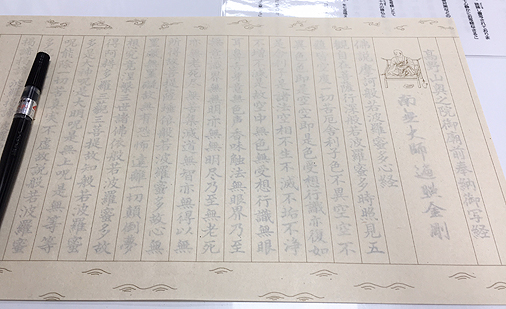 高野山奥之院御廟前奉納御写経
南無大師遍照金剛
佛説摩訶般若波羅蜜多心経
観自在菩薩行深般若波羅蜜多時照見五
蘊皆空度一切苦厄舎利子色不異空空不
異色色即是空空即是色受想行識亦復如
是舎利子是諸法空相不生不滅不垢不浄
不増不減是故空中無色無受想行識無眼
耳鼻舌身意無色声香味触法無眼界乃至
無意識界無無明亦無無明尽乃至無老死
亦無老死尽無苦集滅道無智亦無得以無
所得故菩提薩埵依般若波羅蜜多故心無
罣礙無罣礙故無有恐怖遠離一切顛倒夢
想究竟涅槃三世諸佛依般若波羅蜜多故
得阿耨多羅三藐三菩提故知般若波羅蜜
多是大神呪是大明呪是無上呪是無等等
呪能除一切苦真実不虚故説般若波羅蜜